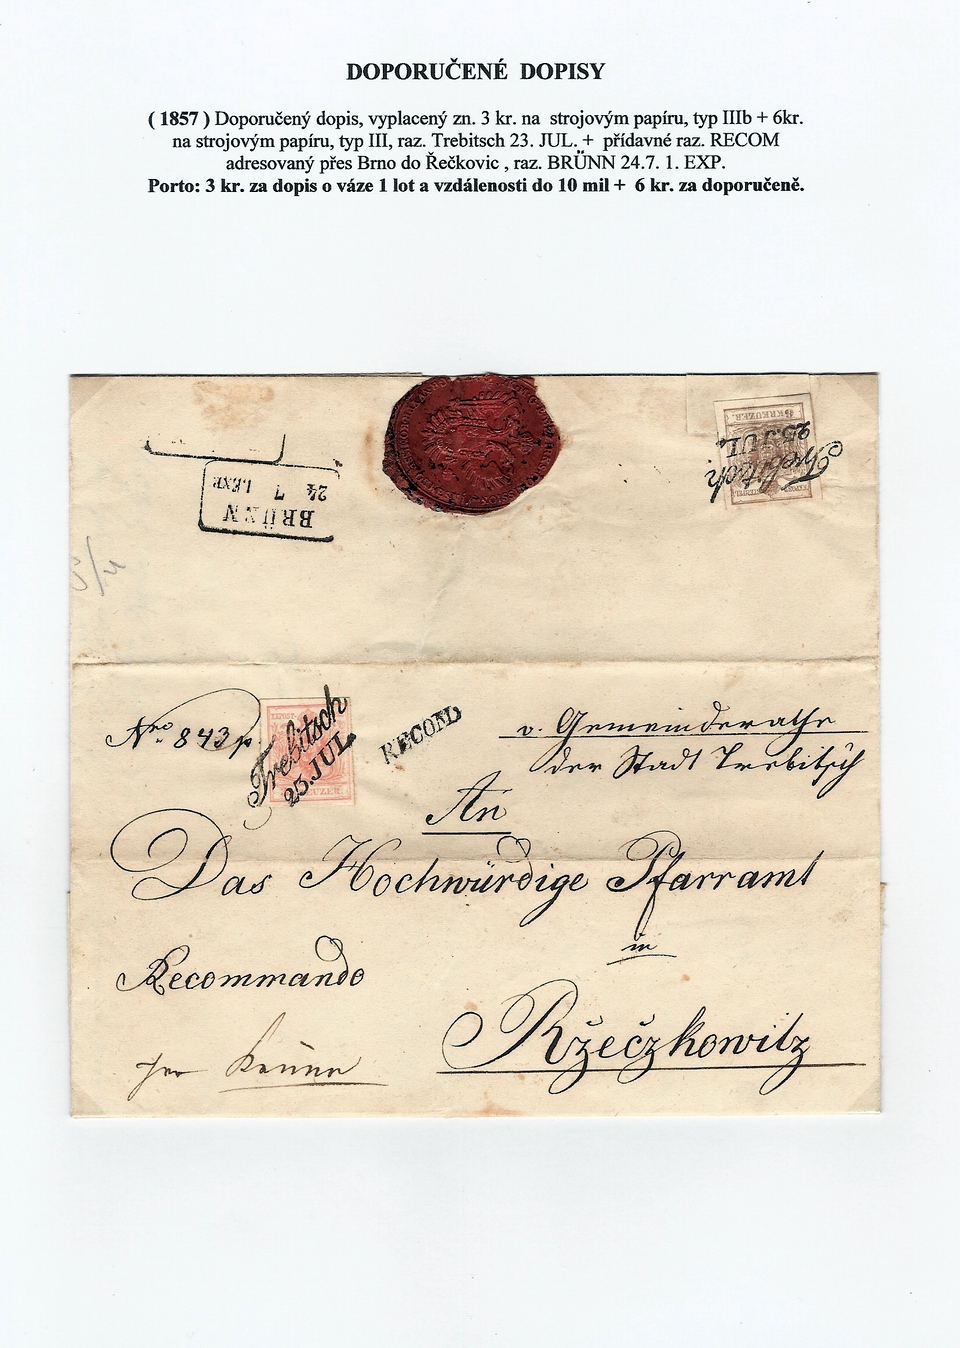 DOPORUČENÉ DOPISY
( 1857 ) Doporučený dopis, vyplacený zn. 3 kr. na strojovým papíru, typ IIIb + 6kr.
na strojovým papíru, typ III, raz. Trebitsch 23. JUL. + přídavné raz. RECOM
adresovaný přes Brno do Řečkovic , raz. BRÜNN 24.7. 1. EXP.
Porto: 3 kr. za dopis o váze 1 lot a vzdálenosti do 10 mil + 6 kr. za doporučeně.
6 KREUZER.
Trebitsch.
25. JUL.
BRÜNN
24 7 1. EXP.
Nro. 843 p.
Trebitsch
25. JUL.
KREUZER.
RECOM.
v. Gemeinderathe
der Stadt Trebitsch
An
Das Hochwürdige Pfarramt
in
Recommando
Ržečzkowitz
per Brünn